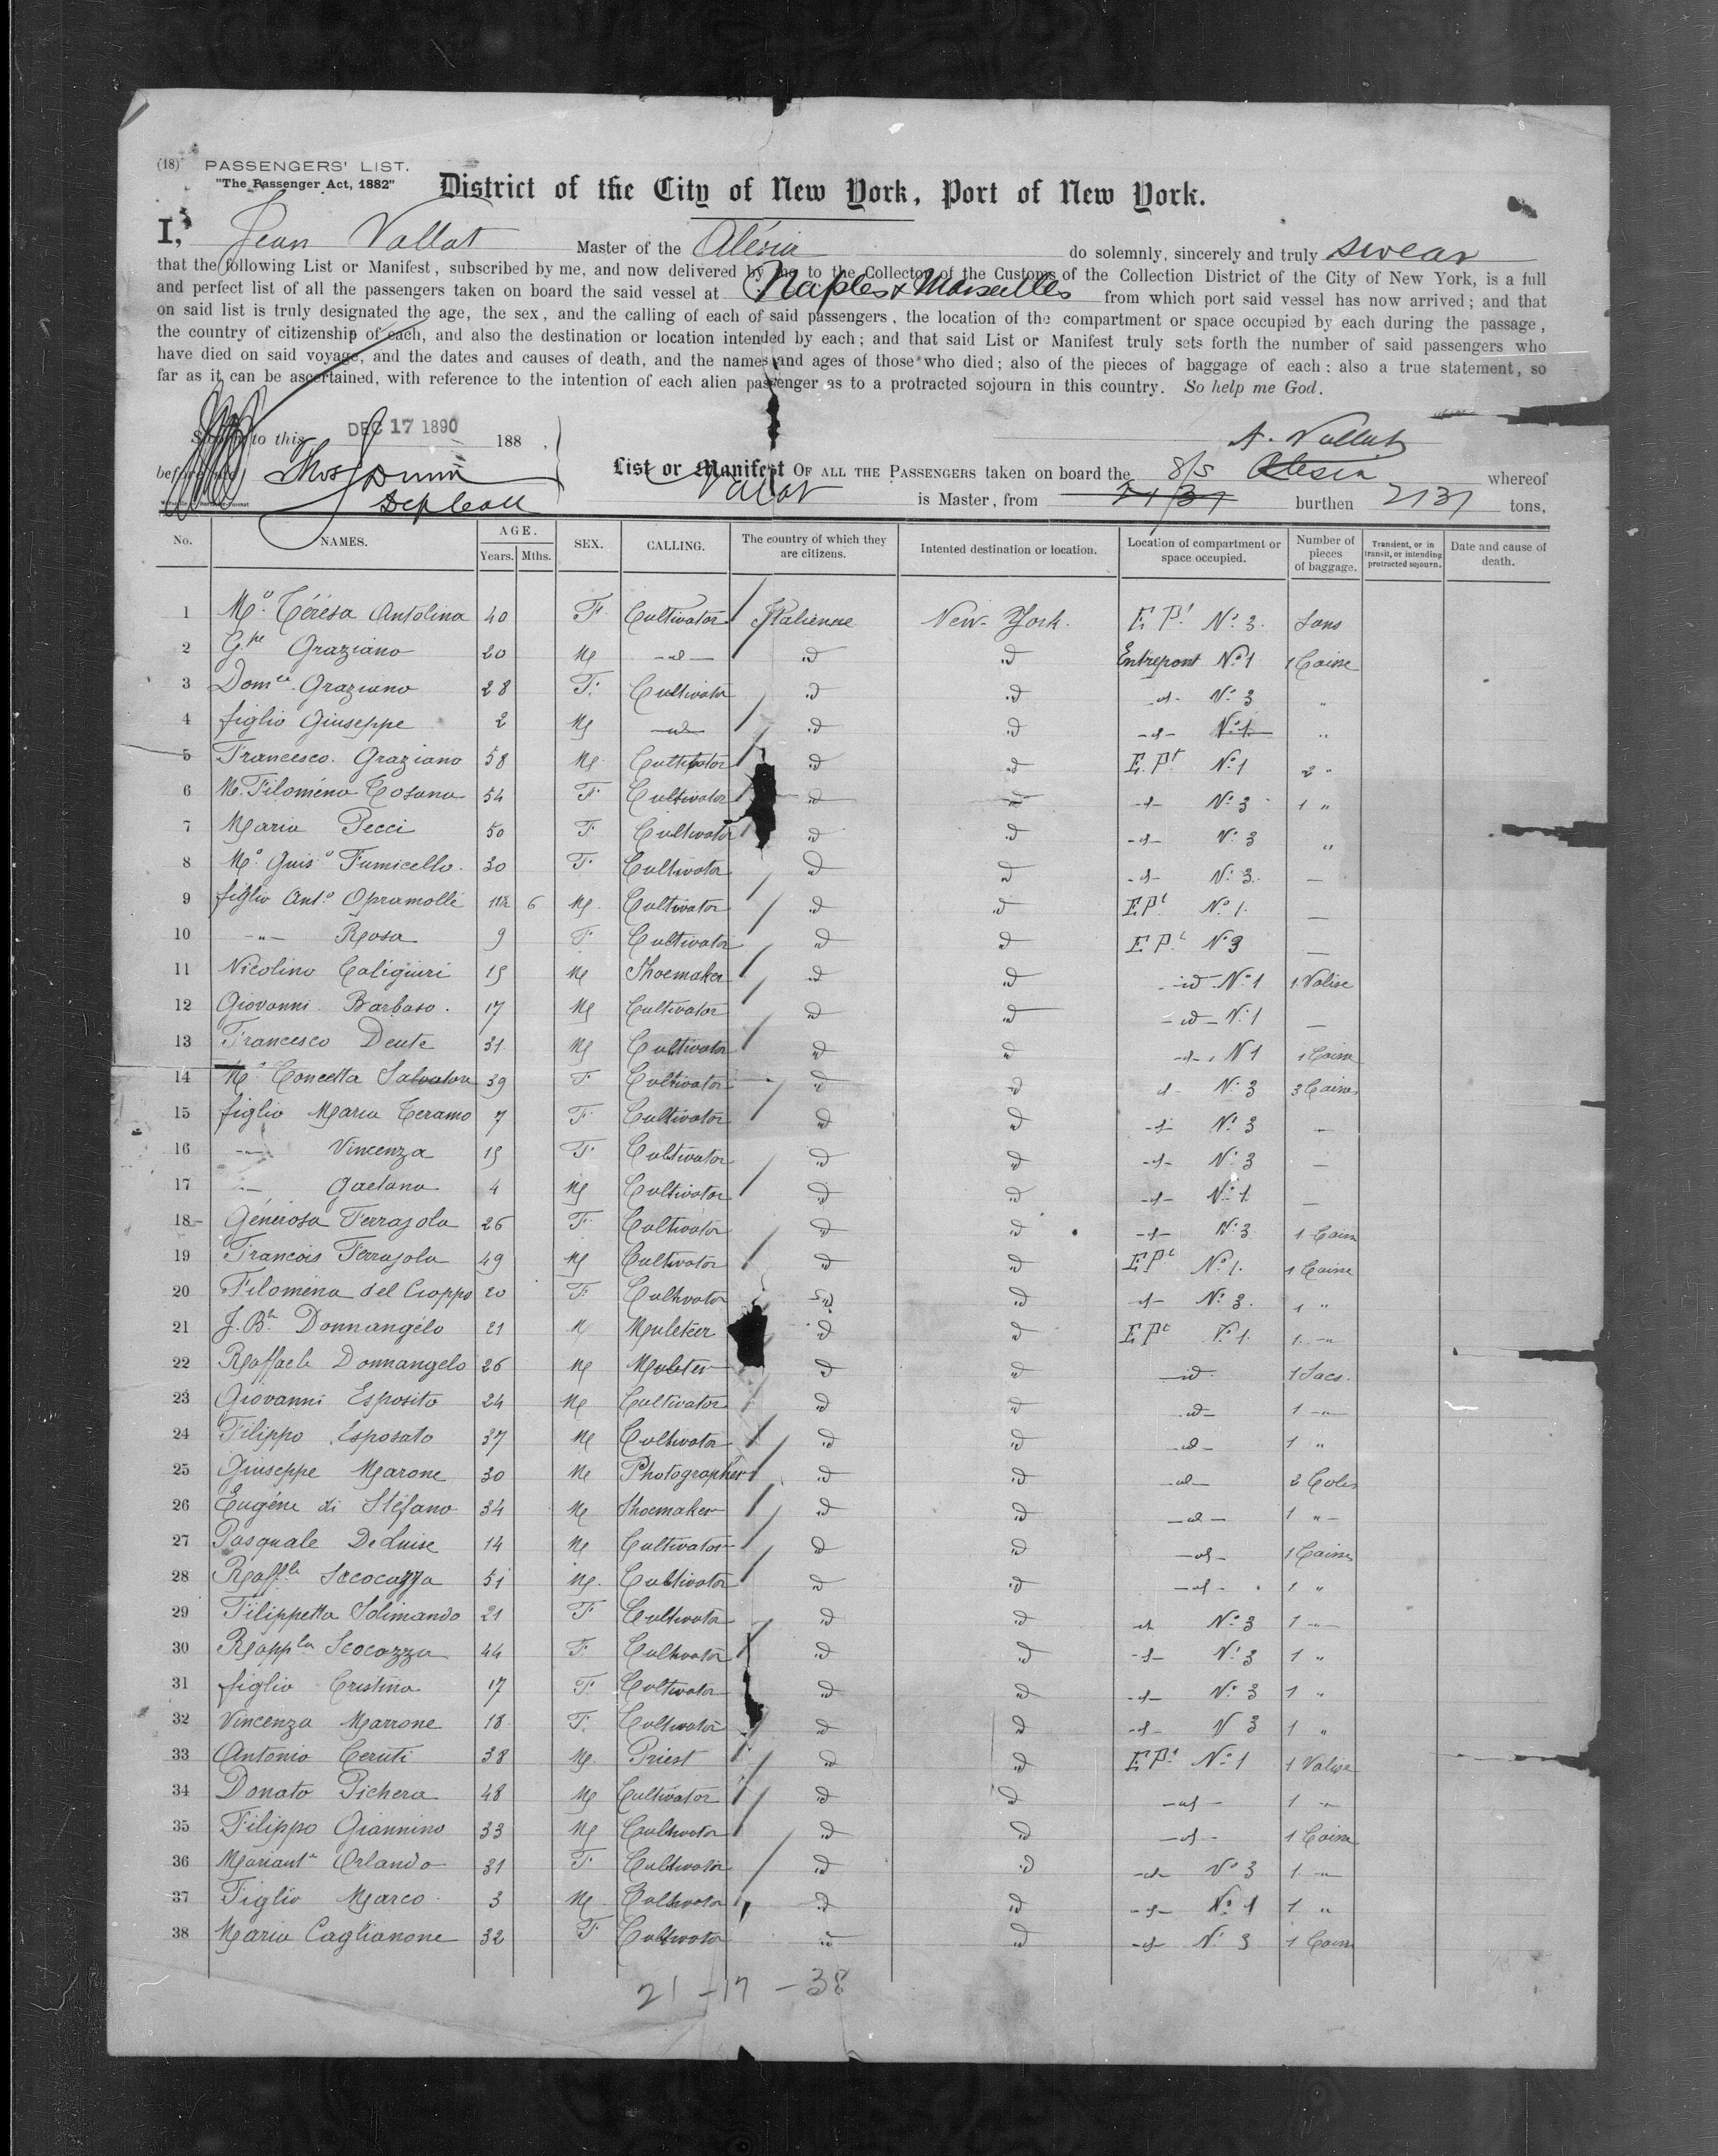 (18) PASSENGERS' LIST.
"The Passenger Act, 1882"
District of the City of New York, Port of New York.
I, Jean Vallat Master of the Alésia do solemnly, sincerely and truly swear
that the following List or Manifest, subscribed by me, and now delivered by me to the Collector of the Customs of the Collection District of the City of New York, is a full
and perfect list of all the passengers taken on board the said vessel at Naples & Marseilles from which port said vessel has now arrived; and that
on said list is truly designated the age, the sex, and the calling of each of said passengers, the location of the compartment or space occupied by each during the passage,
the country of citizenship of each, and also the destination or location intended by each; and that said List or Manifest truly sets forth the number of said passengers who
have died on said voyage, and the dates and causes of death, and the names and ages of those who died; also of the pieces of baggage of each: also a true statement, so
far as it can be ascertained, with reference to the intention of each alien passenger as to a protracted sojourn in this country. So help me God.
to this DEC 17 1890 188 .
A. Vallat
before Thos Dunn
Dep Coll
List or Manifest OF ALL THE PASSENGERS taken on board the S/S Alesia whereof
Vallat is Master, from burthen 2131 tons,
No. NAMES. AGE. Years. Mths. SEX. CALLING. The country of which they are citizens. Intented destination or location. Location of compartment or space occupied. Number of pieces of baggage. Transient, or in transit, or intending protracted sojourn. Date and cause of death.
1 Mª Térésa Antolina 40 F. Cultivator Italienne New-York. E Pt Nº 3. Sans
2 Gpe Graziano 20 M -id- id id Entrepont Nº 1 1 Caisse
3 Domca Graziano 28 F. Cultivator id id -id- Nº 3 "
4 figlio Giuseppe 2 M -id- id id -id- Nº 1 "
5 Francesco Graziano 58 M. Cultivator id id E. Pt Nº 1 2 "
6 M. Filoména Cosana 54 F Cultivator id id -id- Nº 3 1 "
7 Maria Pecci 50 F. Cultivator id id -id- Nº 3 "
8 Mª Guisª Fumicello. 30 F. Cultivator id id -id- Nº 3. —
9 figlio Antº Opramolle 6 M. Cultivator id id E Pt Nº 1. —
10 -"- Rosa 9 F Cultivator id id E Pt Nº 3 —
11 Nicolino Caligiuri 19 M Shoemaker id id -id- Nº 1 1 Valise
12 Giovanni Barbaso. 17 M Cultivator id id -id- Nº 1 —
13 Francesco Dente 31. M Cultivator id id -id- Nº 1 1 Caisse
14 Mª Concetta Salvatore 39 F Cultivator id id id- Nº 3 3 Caisses
15 figlio Maria Teramo 7 F. Cultivator id id -id- Nº 3 "
16 -"- Vincenza 19 F. Cultivator id id -id- Nº 3 —
17 -"- Gaetano 4 M Cultivator id id -id- Nº 1 —
18 Génerosa Ferrajola 26 F. Cultivator id id -id- Nº 3 1 Caisse
19 Francois Ferrajola 49 M Cultivator id id E Pt Nº 1. 1 Caisse
20 Filoména del Cioppo 20 F Cultivator id id -id- Nº 3. 1 "
21 J. Bte Donnangélo 21 M Muleteer id id E Pt Nº 1. 1 -"-
22 Raffaele Donnangelo 26 M Muleteer id id -id- 1 Sacs.
23 Giovanni Esposito 24 M Cultivator id id -id- 1 -"-
24 Filippo Esposato 37 M Cultivator id id -id- 1 "
25 Giuseppe Marone 30 M Photographer id id -id- 2 Colis
26 Eugéne di Stéfano 34 M Shoemaker id id -id- 1 "-
27 Pasquale De Luise 14 M Cultivator id id -id- 1 Caisse
28 Raffle Scocozza 51 M. Cultivator id id -id- 1 "
29 Filippetta Solimando 21 F Cultivator id id -id- Nº 3 1 -"-
30 Rappla Scocozza 44 F. Cultivator id id -id- Nº 3 1 "
31 figlio Cristina 17 F. Cultivator id id -id- Nº 3 1 "
32 Vincenza Marrone 18 F. Cultivator id id -id- Nº 3 1 "
33 Antonio Ceruti 38 M. Priest id id E Pt Nº 1 1 Valise
34 Donato Pichera 48 M Cultivator id id -id- 1 -"-
35 Filippo Giannino 33 M Cultivator id id -id- 1 Caisse
36 Mariantª Orlando 31 F Cultivator id id -id- Nº 3 1 -"-
37 Figlio Marco 3 M. Cultivator id id -id- Nº 1 1 "
38 Maria Caglianone 32 F Cultivator id id -id- Nº 3 1 Caisse
21 - 17 - 38